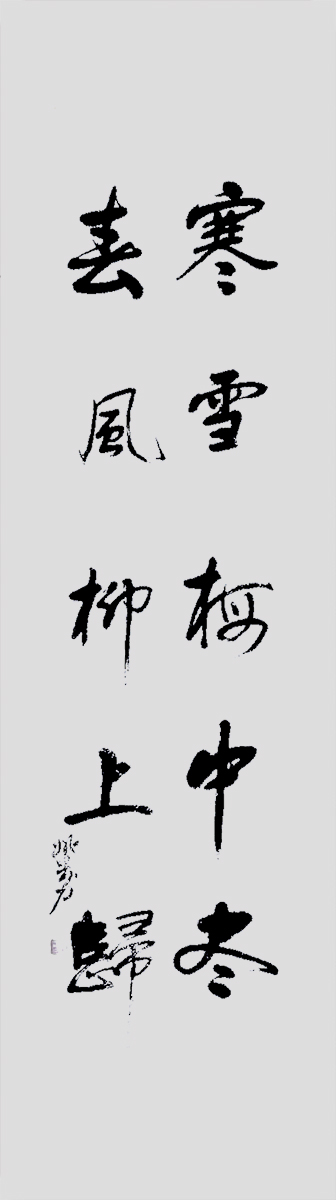 寒雪梅中尽
春風柳上歸